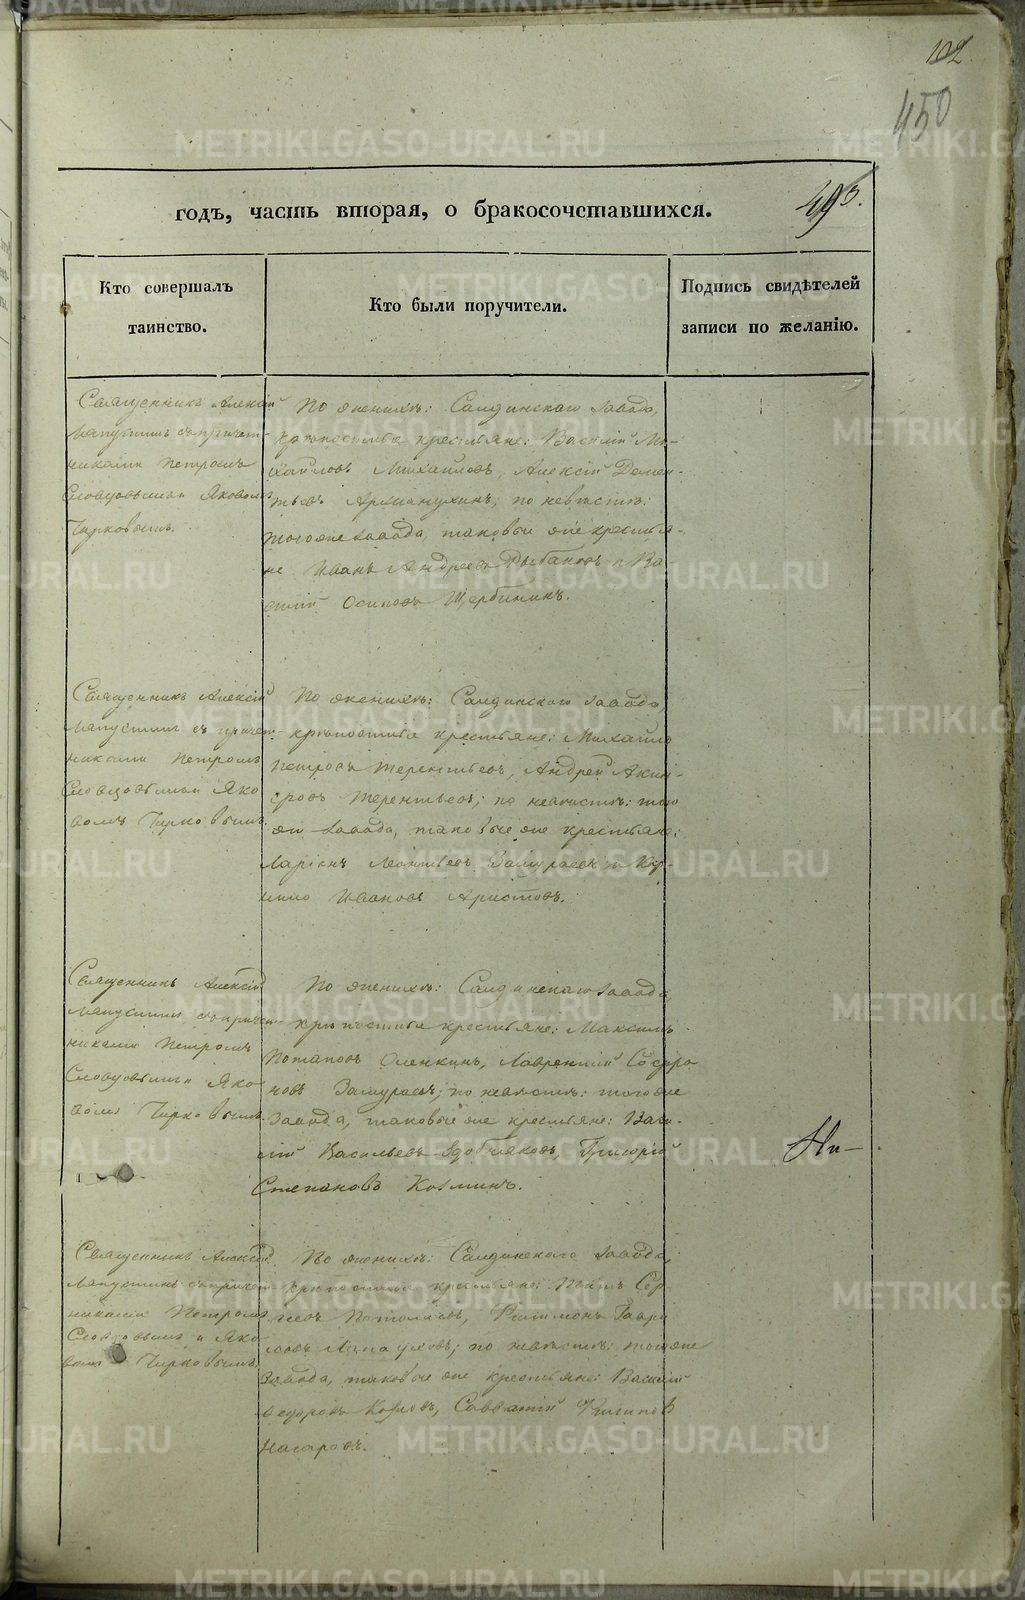 102
450
493.
годъ, часть вторая, о бракосочетавшихся.
Кто совершалъ
таинство.
Кто были поручители.
Подпись свидѣтелей
записи по желанію.
Священникъ Алексій
Лапустинъ съ причет-
никами Петромъ
Словцовымъ и Яковомъ
Чирковымъ.
По женихѣ: Салдинскаго завода,
крѣпостные крестьяне: Василій Ми-
хайловъ Михайловъ, Алексій Демен-
тьевъ; по невѣстѣ:
тогоже завода, таковые же крестья-
не Иванъ Андреевъ Рыбаковъ и Ва-
силій Осиповъ Щербининъ.
Священникъ Алексій
Лапустинъ съ причет-
никами Петромъ
Словцовымъ и Яко
вомъ Чирковымъ.
По женихѣ: Салдинскаго завода,
крѣпостные крестьяне: Михайло
Петровъ Терентьевъ, Андрей
Терентьевъ; по невѣстѣ: того
же завода, таковые же крестьяне:
Ларіонъ Леонтьевъ Замураевъ и
Ивановъ Аристовъ.
Священникъ Алексій
Лапустинъ съ причет
никами Петромъ
Словцовымъ и Яко
вомъ Чирковымъ.
По женихѣ: Салдинскаго завода,
крѣпостные крестьяне: Максимъ
Потаповъ Оленкинъ, Лаврентій Софро
новъ Замураевъ; по невѣстѣ: тогоже
завода, таковые же крестьяне: Васи-
лій Васильевъ Здобняковъ, Григорій
Степановъ Козминъ.
Ни-
Священникъ Алексій
Лапустинъ съ причет
никами Петромъ
Словцовымъ и Яко
вомъ Чирковымъ.
По женихѣ: Салдинскаго завода,
крѣпостные крестьяне:
Филимонъ Гаври
ловъ; по невѣстѣ: тогоже
завода, таковые же крестьяне: Василій
Федоровъ Козловъ, Савватій Филиповъ